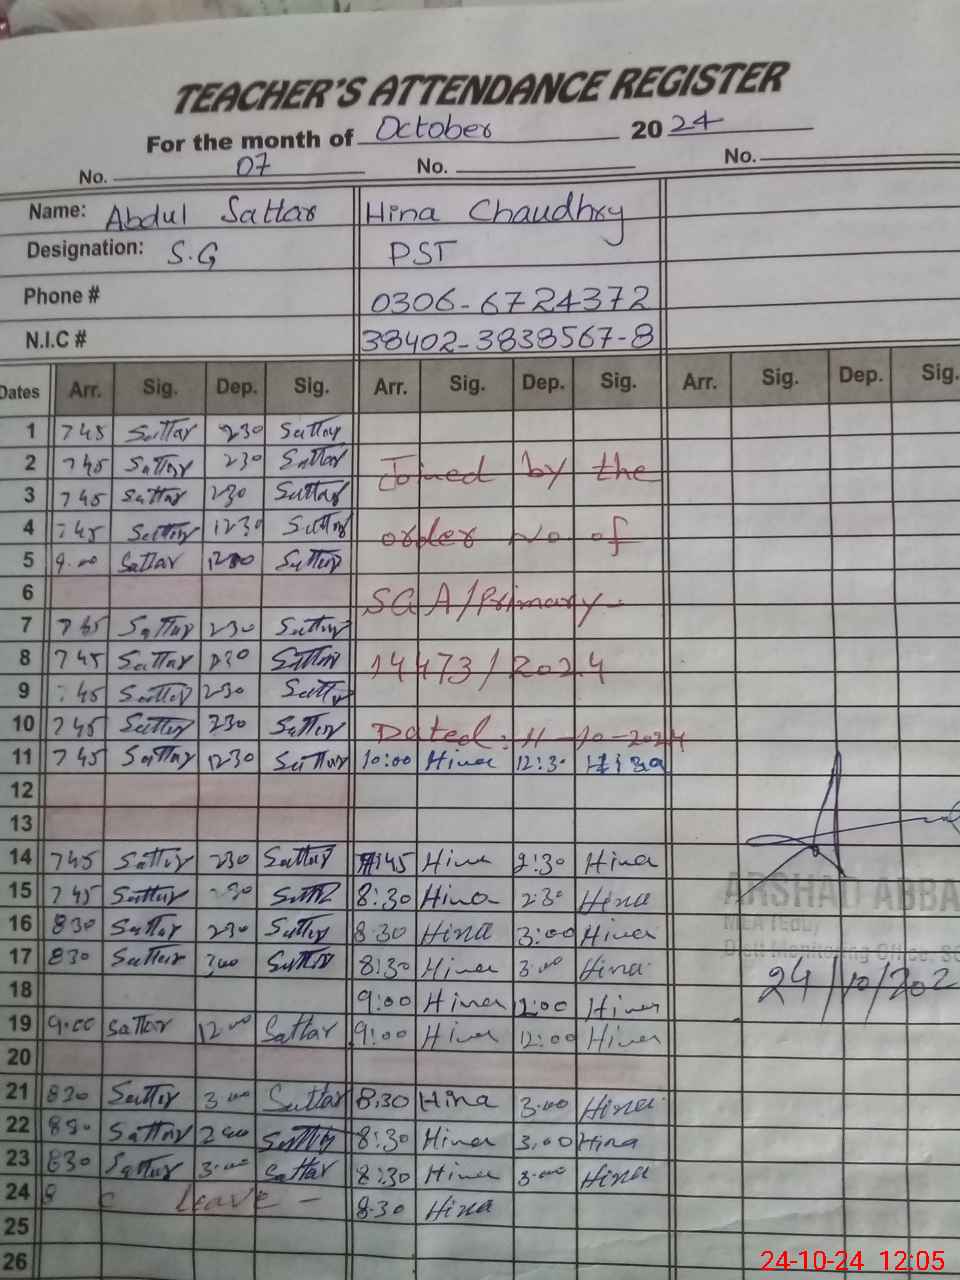 TEACHER'S ATTENDANCE REGISTER
For the month of October 2024
No. 07 No. No.
Name: Abdul Sattar Hina Chaudhry
Designation: S.G PST
Phone # 0306-6724372
N.I.C # 38402-3838567-8
Dates Arr. Sig. Dep. Sig. Arr. Sig. Dep. Sig. Arr. Sig. Dep. Sig.
1 745 Sattar 230 Sattar
2 745 Sattar 230 Sattar Joined by the
3 745 Sattar 230 Sattar
4 745 Sattar 1230 Sattar order No of
5 9.00 Sattar 1200 Sattar
6 SGA/Primary-
7 745 Sattar 230 Sattar
8 745 Sattar 230 Sattar 14473/2024
9 745 Sattar 230 Sattar
10 745 Sattar 230 Sattar Dated: 11-10-2024
11 745 Sattar 1230 Sattar 10:00 Hina 12:30 Hina
12
13
14 745 Sattar 230 Sattar 7:45 Hina 2:30 Hina
15 745 Sattar 230 Sattar 8:30 Hina 2:30 Hina
ARSHAD ABBA
16 830 Sattar 230 Sattar 8:30 Hina 3:00 Hina
MEA (Edu)
17 830 Sattar 300 Sattar 8:30 Hina 3:00 Hina
Distt Monitoring Office, SG
18 9:00 Hina 12:00 Hina
24/10/202
19 9:00 Sattar 1200 Sattar 9:00 Hina 12:00 Hina
20
21 830 Sattar 3:00 Sattar 8:30 Hina 3:00 Hina
22 830 Sattar 200 Sattar 8:30 Hina 3:00 Hina
23 830 Sattar 3:00 Sattar 8:30 Hina 3:00 Hina
24 8 C leave - 8:30 Hina
25
26
24-10-24 12:05